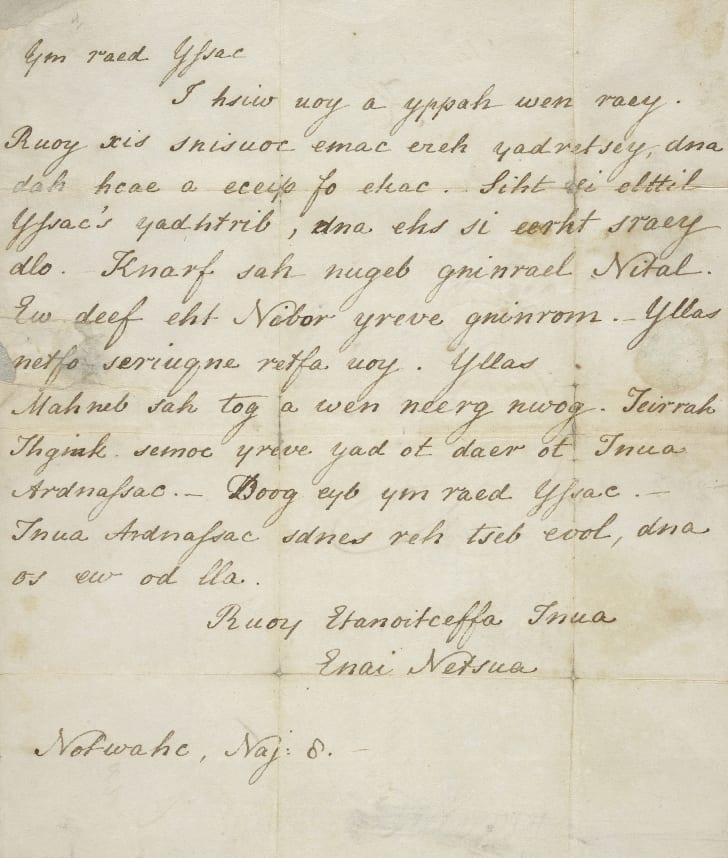 Ym raed Yſsac
I hsiw uoy a yppah wen raey.
Ruoy xis snisuoc emac ereh yadretsey, dna
dah hcae a eceip fo ekac. Siht si elttil
Yſsac's yadhtrib, dna ehs si eerht sraey
dlo. Knarf sah nugeb gninrael Nital.
Ew deef eht Nibor yreve gninrom. – Yllas
netfo seriuqne retfa uoy. Yllas
Mahneb sah tog a wen neerg nwog. Teirrah
Thgink semoc yreve yad ot daer ot Tnua
Ardnaſsac. – Doog eyb ym raed Yſsac. –
Tnua Ardnaſsac sdnes reh tseb evol, dna
os ew od lla.
Ruoy Etanoitceffa Tnua
Enai Netsua
Notwahc, Naj: 8. –